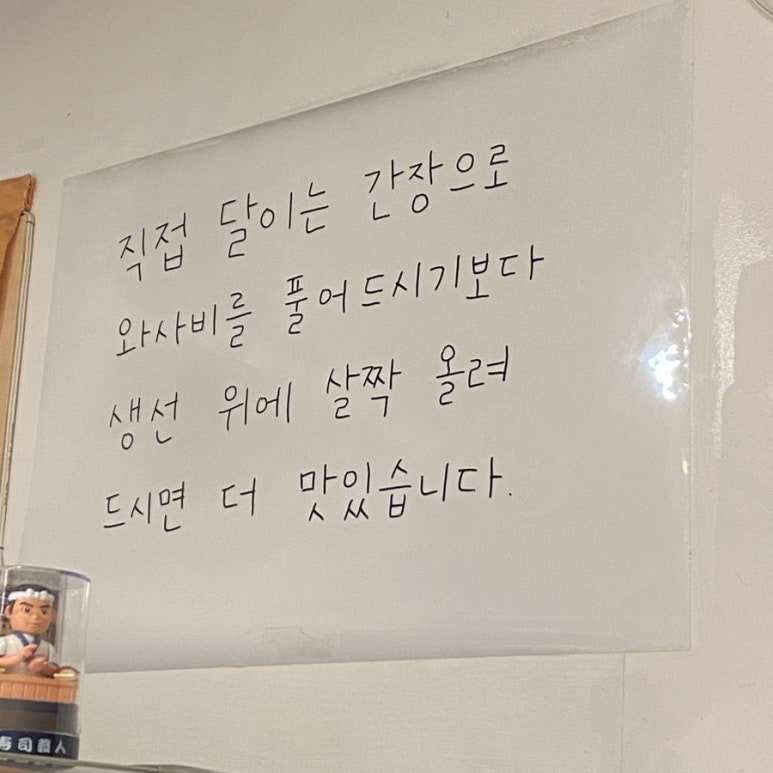 직접 달이는 간장으로
와사비를 풀어드시기보다
생선 위에 살짝 올려
드시면 더 맛있습니다.
寿司職人